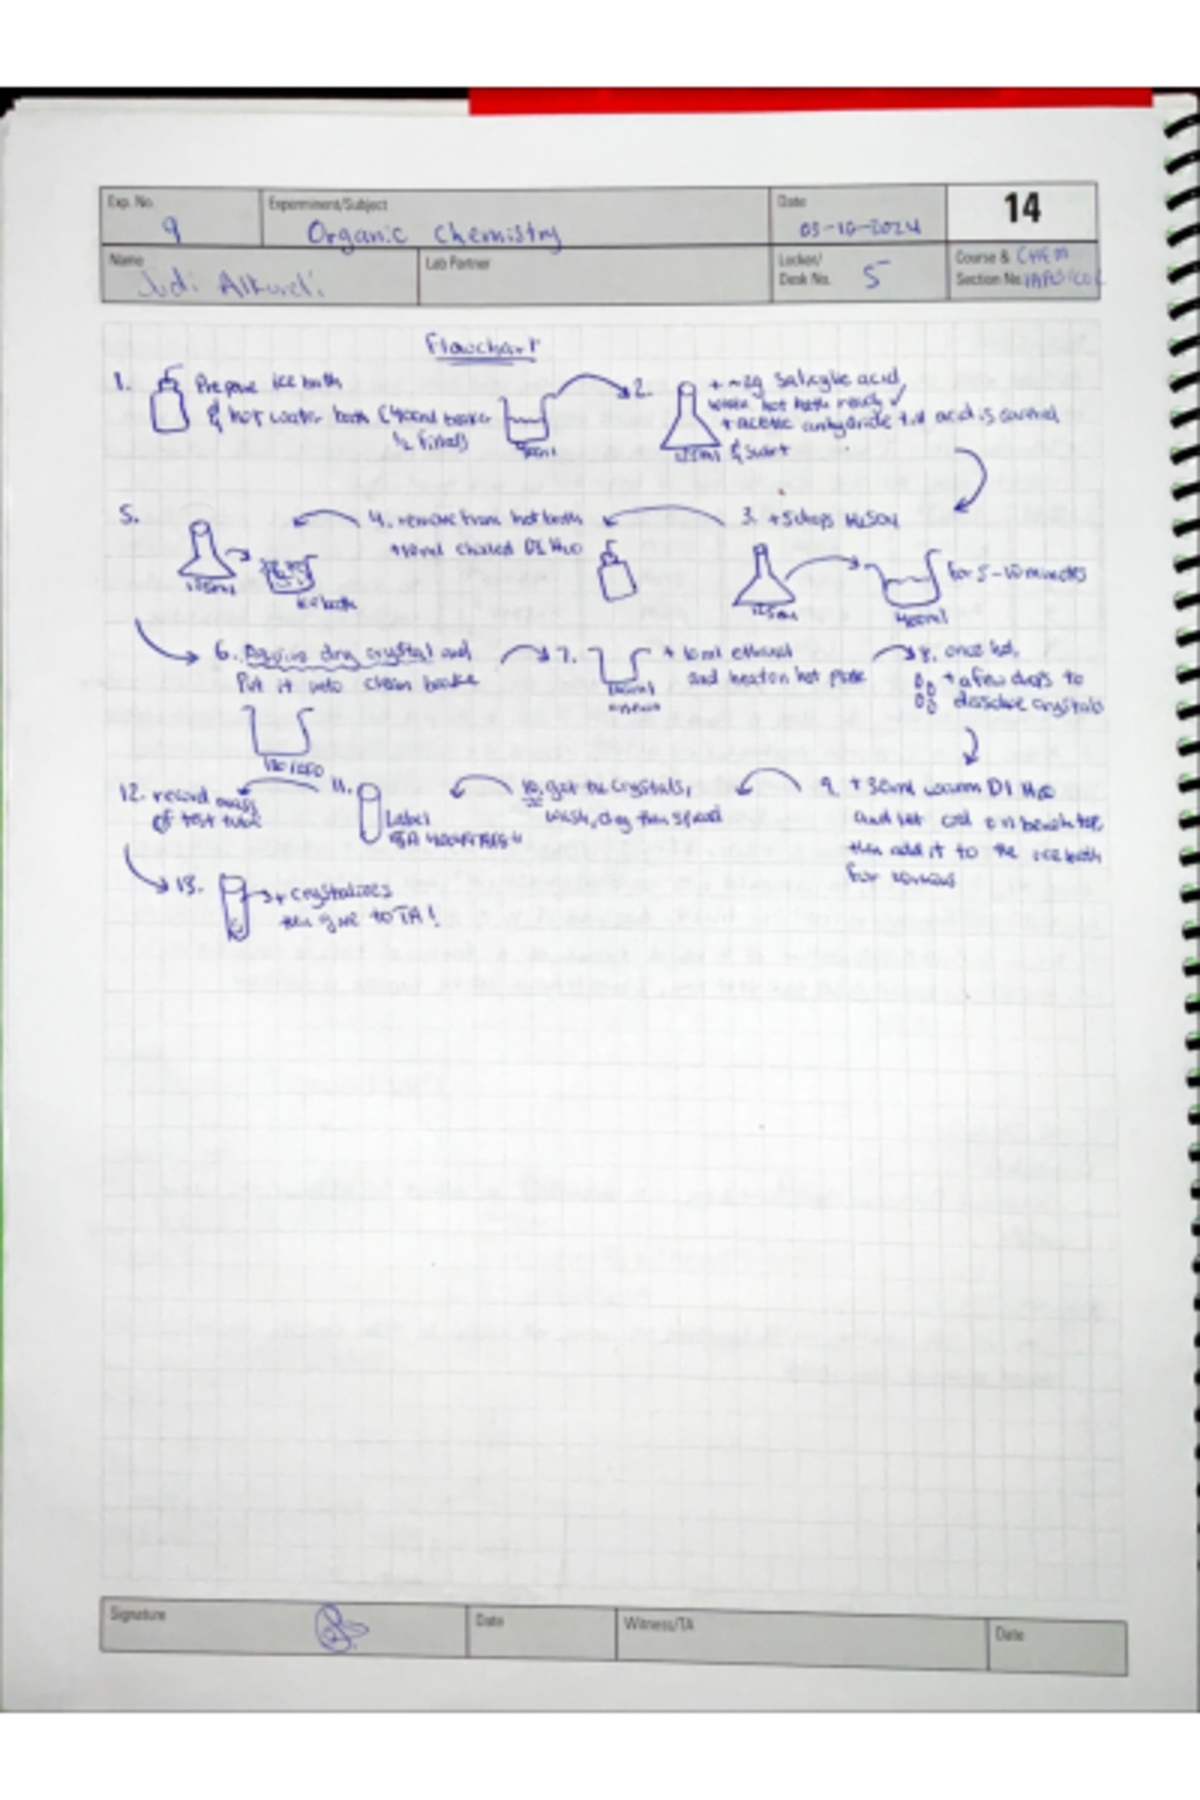 Exp. No.
9
Experiment/Subject
Organic Chemistry
Date
03-10-2024
14
Name
Judi Alkurdi
Lab Partner
Locker/
Desk No.
5
Course &
Section No.
CHEM
Flowchart
1. Prepare ice bath
& hot water bath (400ml beaker
1/2 filled)
400ml
2. + ~2g Salicylic acid
when hot bath ready
+ acetic anhydride till acid is
125ml & swirl
3. +5 drops H2SO4
125ml
400ml
for 5-10 minutes
4. remove from hot bath
+10ml chilled DI H2O
5.
125ml
ice bath
6. Aquire dry crystal and
Put it into clean beake
7. + 10ml ethanol
and heat on hot plate
8. once hot,
+ a few drops to
dissolve crystals
9. + 30ml warm DI H2O
and let cool on bench top
then add it to the ice bath
for
10. get the crystals,
wash, dry then
11.
Label
12. record mass
of test tube
13.
+ crystalizes
then give to TA!
Signature
Date
Witness/TA
Date